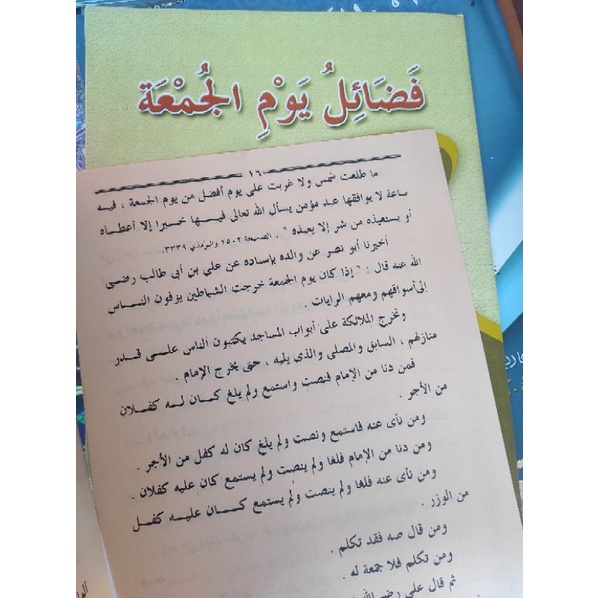 فَضَائِلُ يَوْمِ الْجُمْعَة
١٦
ما طلعت شمس ولا غربت على يوم أفضل من يوم الجمعة ، فيه
ساعة لا يوافقها عبد مؤمن يسأل الله تعالى فيها خيرا إلا أعطاه
أو يستعيذه من شر إلا يعيذه " . الصحيحة ١٥٠٢ والترمذي ٣٣٣٩.
أخبرنا أبو نصر عن والده بإسناده عن علي بن أبي طالب رضي
الله عنه قال : " إذا كان يوم الجمعة خرجت الشياطين يزفون الناس
إلى أسواقهم ومعهم الرايات .
وتخرج الملائكة على أبواب المساجد يكتبون الناس على قدر
منازلهم ، السابق والمصلى والذي يليه ، حتى يخرج الإمام .
فمن دنا من الإمام فنصت واستمع ولم يلغ كان له كفلان
من الأجر .
ومن نأى عنه فاستمع ونصت ولم يلغ كان له كفل من الأجر .
ومن دنا من الإمام فلغا ولم ينصت ولم يستمع كان عليه كفلان .
ومن نأى عنه فلغا ولم ينصت ولم يستمع كان عليه كفل
من الوزر .
ومن قال صه فقد تكلم .
ومن تكلم فلا جمعة له .
ثم قال علي رضي